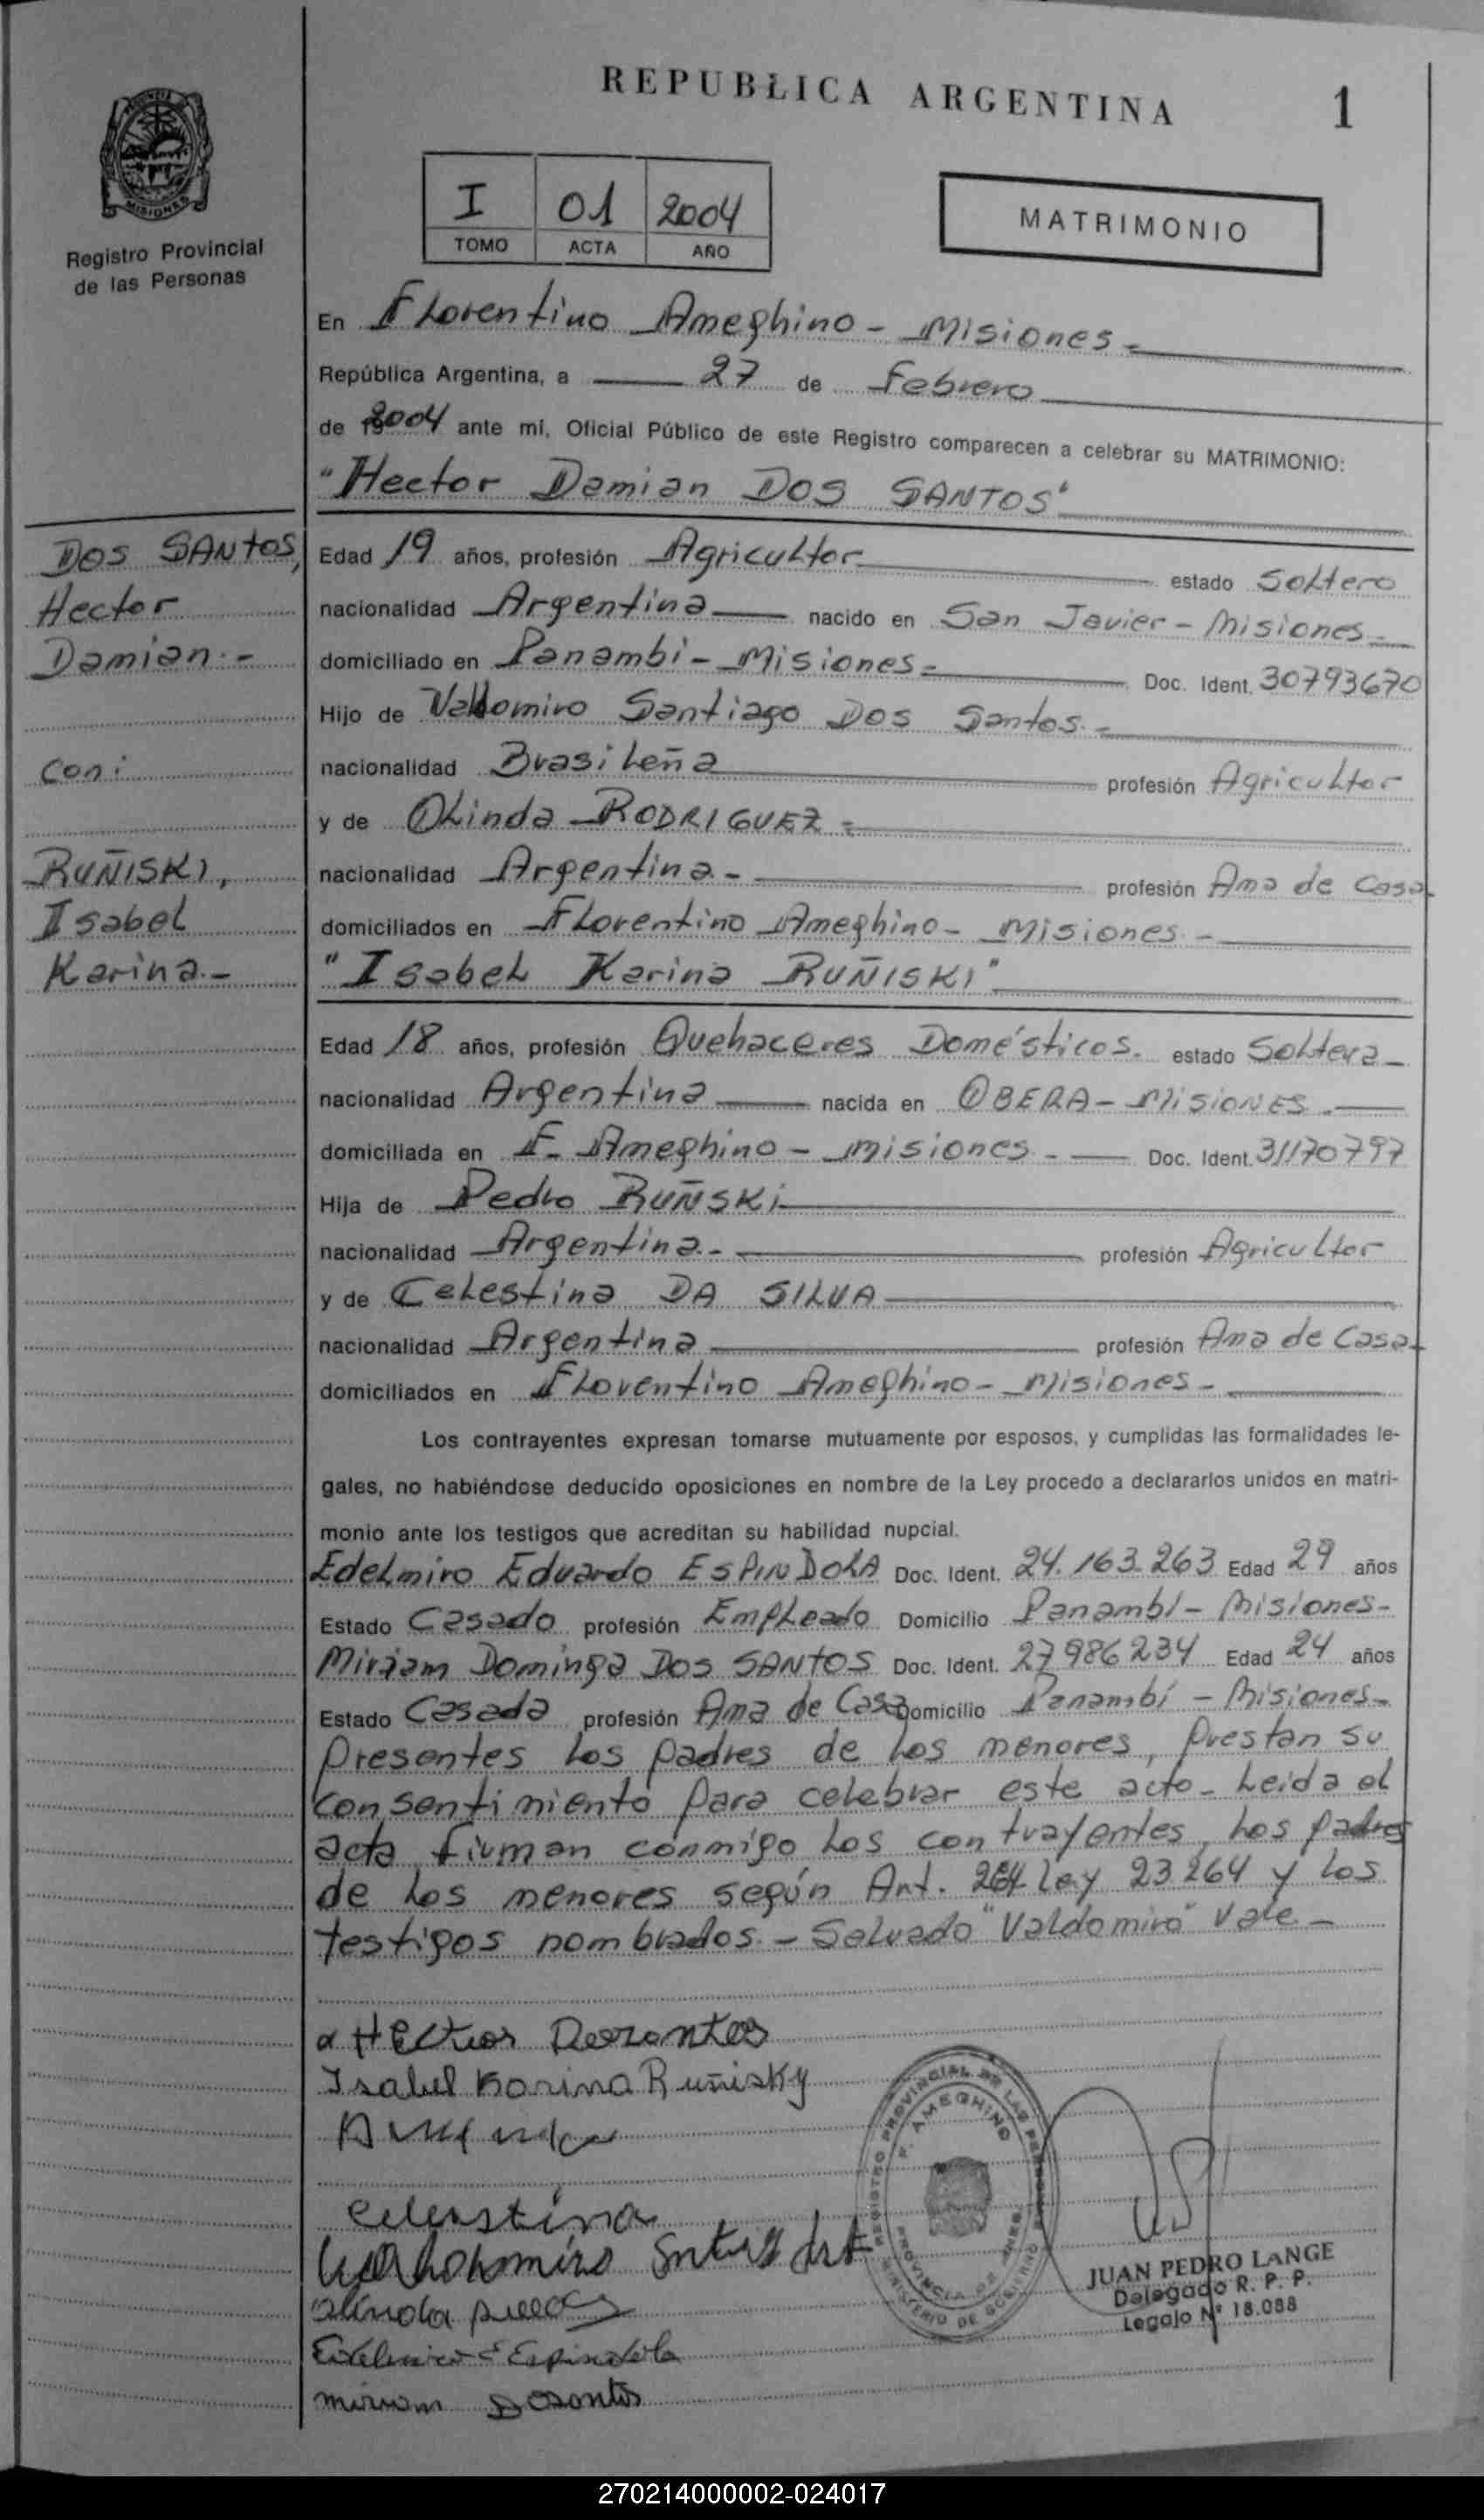 REPUBLICA ARGENTINA
1
PROVINCIA
MISIONES
Registro Provincial
de las Personas
I 01 2004
TOMO ACTA AÑO
MATRIMONIO
En Florentino Ameghino - Misiones -
República Argentina, a 27 de Febrero
de 2004 ante mi, Oficial Público de este Registro comparecen a celebrar su MATRIMONIO:
"Hector Damian DOS SANTOS"
DOS SANTOS,
Hector
Damian.-
con:
RUÑISKI,
Isabel
Karina.-
Edad 19 años, profesión Agricultor estado Soltero
nacionalidad Argentina nacido en San Javier - Misiones -
domiciliado en Panambi - Misiones - Doc. Ident. 30793670
Hijo de Valdomiro Santiago Dos Santos.-
nacionalidad Brasileña profesión Agricultor
y de Olinda RODRIGUEZ -
nacionalidad Argentina - profesión Ama de Casa
domiciliados en Florentino Ameghino - Misiones -
"Isabel Karina RUÑISKI"
Edad 18 años, profesión Quehaceres Domésticos. estado Soltera
nacionalidad Argentina nacida en OBERA - MISIONES.
domiciliada en F. Ameghino - Misiones - Doc. Ident. 31170797
Hija de Pedro RUÑSKi
nacionalidad Argentina.- profesión Agricultor
y de Celestina DA SILVA
nacionalidad Argentina profesión Ama de Casa
domiciliados en Florentino Ameghino - Misiones -
Los contrayentes expresan tomarse mutuamente por esposos, y cumplidas las formalidades le-
gales, no habiéndose deducido oposiciones en nombre de la Ley procedo a declararlos unidos en matri-
monio ante los testigos que acreditan su habilidad nupcial.
Edelmiro Eduardo ESPINDOLA Doc. Ident. 24.163.263 Edad 29 años
Estado Casado profesión Empleado Domicilio Panambi - Misiones -
Miriam Dominga DOS SANTOS Doc. Ident. 27986234 Edad 24 años
Estado Casada profesión Ama de Casa Domicilio Panambí - Misiones -
Presentes los padres de los menores, prestan su
consentimiento para celebrar este acto - Leida el
acta firman conmigo los contrayentes, los padres
de los menores según Art. 264 Ley 23264 y los
testigos nombrados. - Salvado "Valdomiro" Vale -
Isabel Karina Ruñisky
Celestina
Edelmiro E Espindola
REGISTRO PROVINCIAL DE LAS PERSONAS
F. AMEGHINO
MINISTERIO DE GOBIERNO
JUAN PEDRO LANGE
Delegado R. P. P.
Legajo Nº 18.088
270214000002-024017